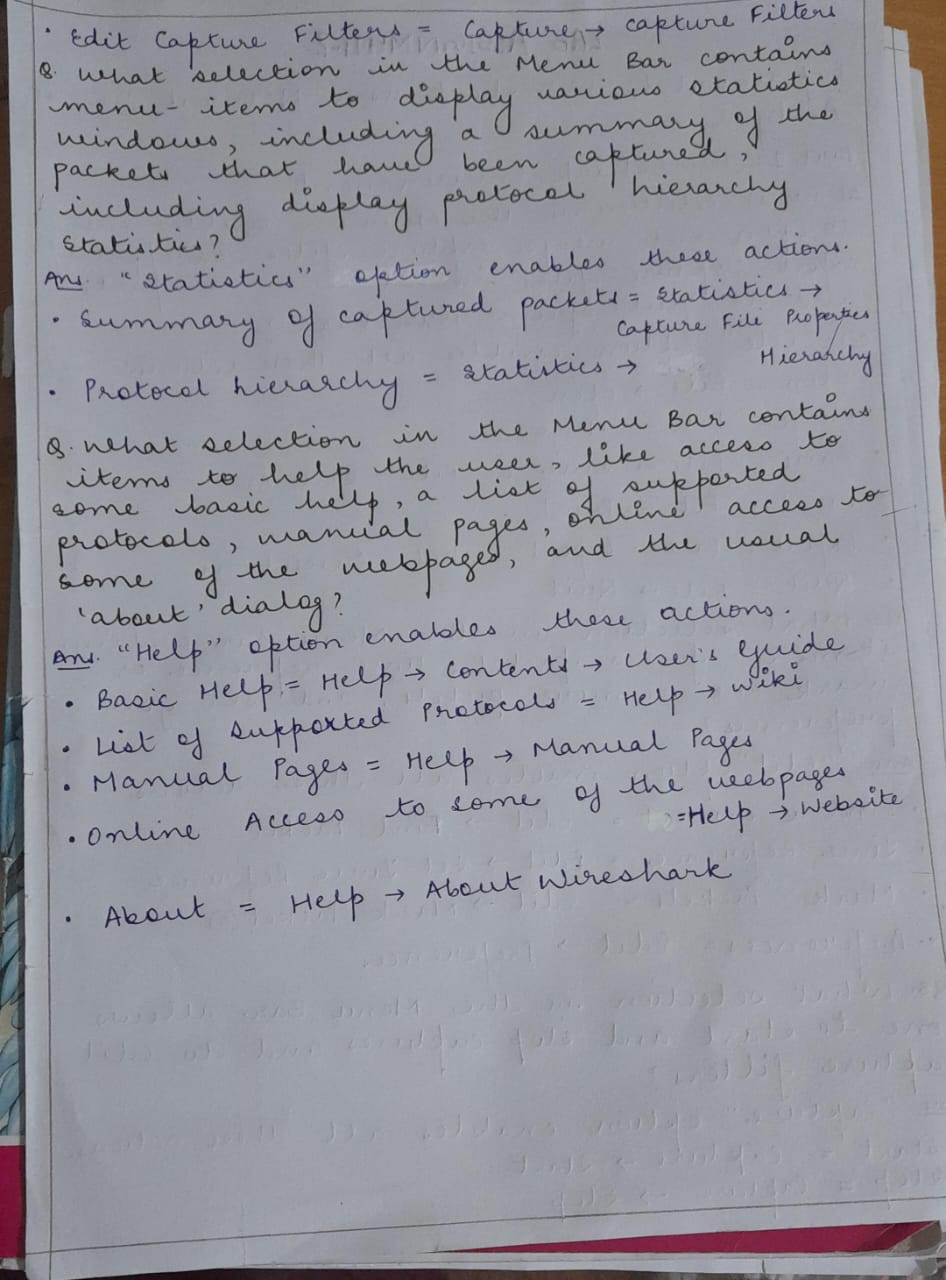 • Edit Capture Filters = Capture → capture Filters
Q. What selection in the Menu Bar contains
menu-items to display various statistics
windows, including a summary of the
packets that have been captured,
including display protocol hierarchy
statistics?
Ans. "Statistics" option enables these actions.
• Summary of captured packets = Statistics →
Capture File Properties
• Protocol hierarchy = Statistics → Hierarchy
Q. What selection in the Menu Bar contains
items to help the user, like access to
some basic help, a list of supported
protocols, manual pages, online access to
some of the webpages, and the usual
'about' dialog?
Ans. "Help" option enables these actions.
• Basic Help = Help → Contents → User's Guide
• List of Supported Protocols = Help → Wiki
• Manual Pages = Help → Manual Pages
• Online Access to some of the webpages
=Help → Website
• About = Help → About Wireshark